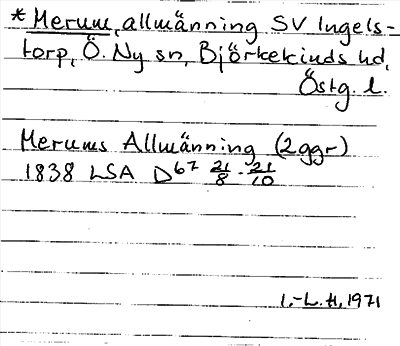 * Merum, allmänning SV Ingels-
torp, Ö. Ny sn, Björkekinds hd,
Östg. l.
Merums Allmänning (2ggr)
1838 LSA D67 21/8 - 21/10
I.-L. H, 1971